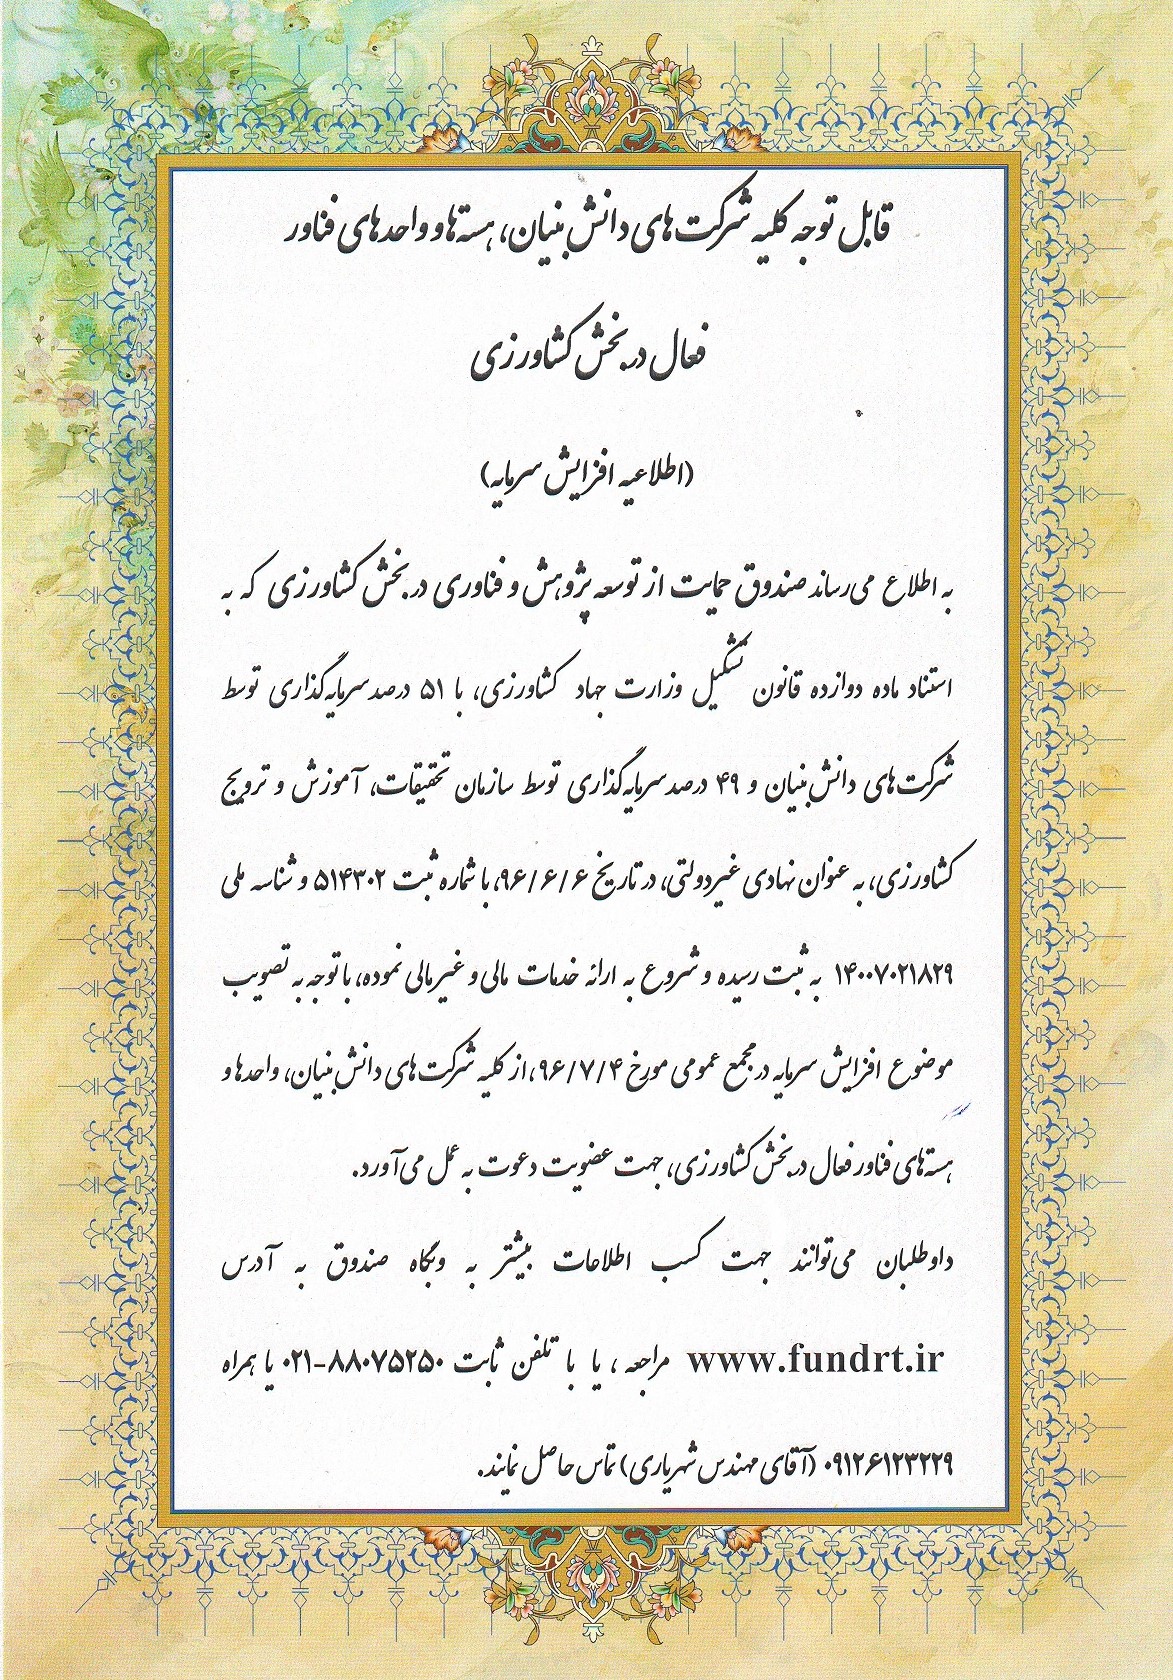 قابل توجه کلیه شرکت‌های دانش‌بنیان، هسته‌ها و واحدهای فناور
فعال در بخش کشاورزی
(اطلاعیه افزایش سرمایه)
به اطلاع می‌رساند صندوق حمایت از توسعه پژوهش و فناوری در بخش کشاورزی که به
استناد ماده دوازده قانون تشکیل وزارت جهاد کشاورزی، با ۵۱ درصد سرمایه‌گذاری توسط
شرکت‌های دانش‌بنیان و ۴۹ درصد سرمایه‌گذاری توسط سازمان تحقیقات، آموزش و ترویج
کشاورزی، به عنوان نهادی غیردولتی، در تاریخ ۹۶/۶/۶، با شماره ثبت ۵۱۴۳۰۲ و شناسه ملی
۱۴۰۰۷۰۲۱۸۲۹ به ثبت رسیده و شروع به ارائه خدمات مالی و غیرمالی نموده، با توجه به تصویب
موضوع افزایش سرمایه در مجمع عمومی مورخ ۹۶/۷/۴، از کلیه شرکت‌های دانش‌بنیان، واحدها و
هسته‌های فناور فعال در بخش کشاورزی، جهت عضویت دعوت به عمل می‌آورد.
داوطلبان می‌توانند جهت کسب اطلاعات بیشتر به وبگاه صندوق به آدرس
www.fundrt.ir مراجعه ، یا با تلفن ثابت ۰۲۱-۸۸۰۷۵۲۵۰ یا همراه
۰۹۱۲۶۱۲۳۲۲۹ (آقای مهندس شهریاری) تماس حاصل نمایند.